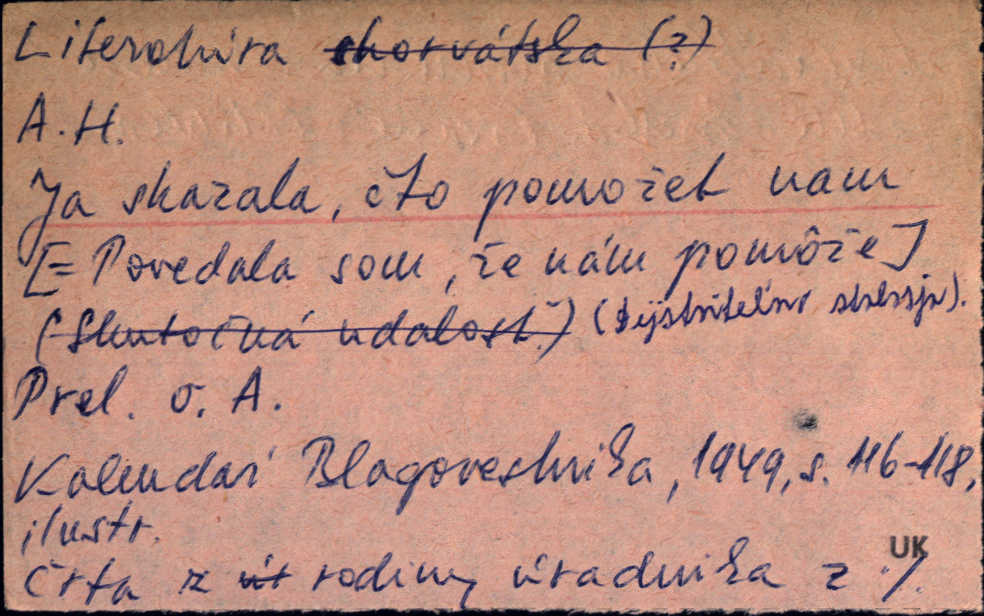 Literatúra chorvátska (?)
A. H.
Ja skazala, čto pomožet nam
[= Povedala som, že nám pomôže]
(Skutočná udalosť.) (Dijstvitelno stalossja).
Prel. o. A.
Kalendar Blagovestnika, 1949, s. 116-118,
ilustr.
UK
Črta z úr rodiny úradníka z ./.